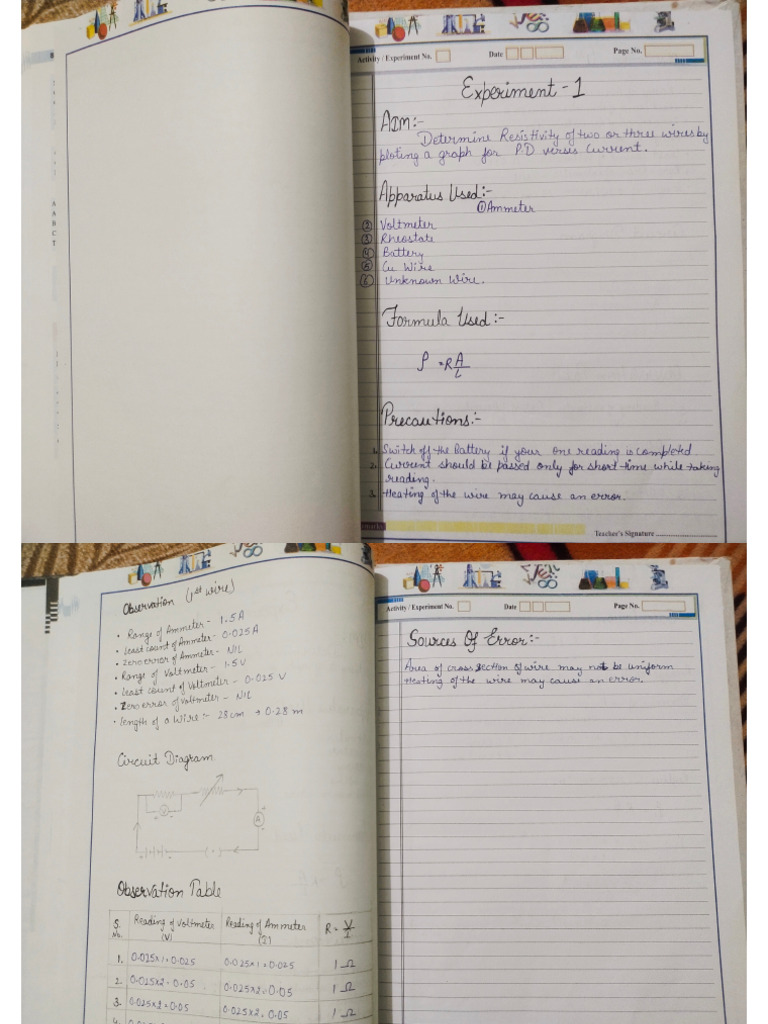 Activity / Experiment No.
Date
Page No.
Experiment - 1
AIM:-
Determine Resistivity of two or three wires by
ploting a graph for P.D verses Current.
Apparatus Used:-
① Ammeter
② Voltmeter
③ Rheostate
④ Battery
⑤ Cu Wire
⑥ Unknown Wire.
Formula Used:-
ρ = R A/L
Precautions:-
1. Switch off the Battery if your one reading is completed
2. Current should be passed only for short time while taking
reading.
3. Heating of the wire may cause an error.
Teacher's Signature
Observation (1st wire)
• Range of Ammeter - 1.5A
• Least count of Ammater - 0.025A
• Zero error of Ammeter - NIL
• Range of Voltmeter - 1.5V
• Least count of Voltmeter - 0.025 V
• Zero error of Voltmeter - NIL
• Length of a Wire :- 28cm → 0.28 m
Circuit Diagram
V
A
+ -
( • )
Observation Table
S. No. Reading of Voltmeter (V) Reading of Ammeter (I) R = V/I
1. 0.025×1=0.025 0.025×1=0.025 1 Ω
2. 0.025×2=0.05 0.025×2=0.05 1 Ω
3. 0.025×2=0.05 0.025×2=0.05 1 Ω
4.
Activity / Experiment No.
Date
Page No.
Sources Of Error:-
Area of cross section of wire may not be uniform
Heating of the wire may cause an error.